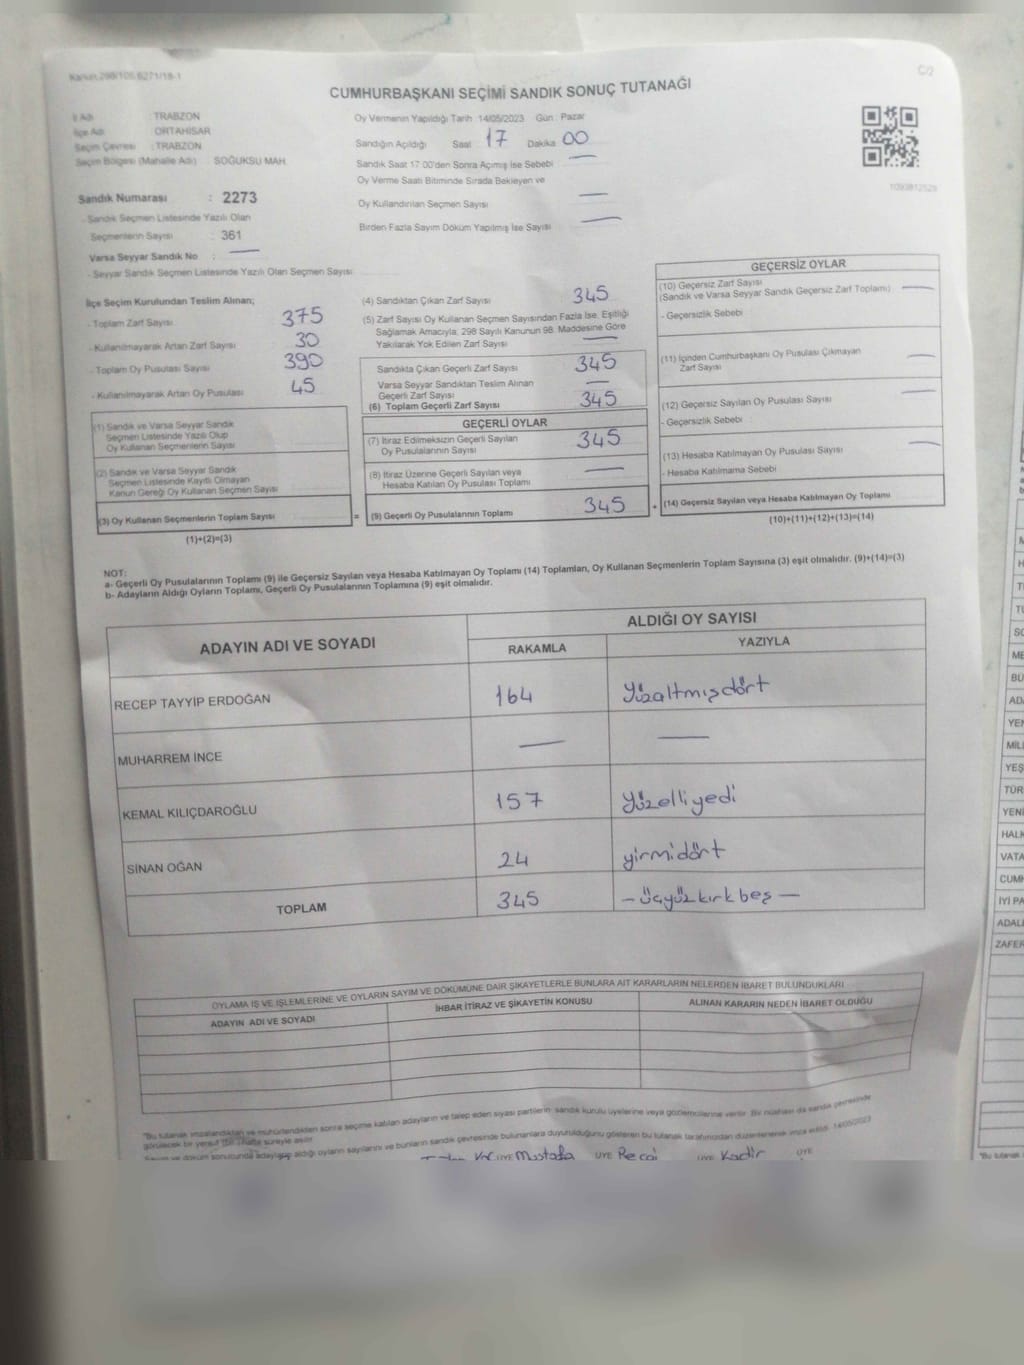 Kanun.298/105,6271/18-1
C/2
CUMHURBAŞKANI SEÇİMİ SANDIK SONUÇ TUTANAĞI
İl Adı TRABZON
İlçe Adı ORTAHİSAR
Seçim Çevresi : TRABZON
Seçim Bölgesi (Mahalle Adı) SOĞUKSU MAH.
Sandık Numarası : 2273
- Sandık Seçmen Listesinde Yazılı Olan
Seçmenlerin Sayısı : 361
Varsa Seyyar Sandık No : —
- Seyyar Sandık Seçmen Listesinde Yazılı Olan Seçmen Sayısı
Oy Vermenin Yapıldığı Tarih 14/05/2023 Gün : Pazar
Sandığın Açıldığı Saat 17 Dakika 00
Sandık Saat 17:00'den Sonra Açılmış İse Sebebi —
Oy Verme Saati Bitiminde Sırada Bekleyen ve
Oy Kullandırılan Seçmen Sayısı —
Birden Fazla Sayım Döküm Yapılmış İse Sayısı —
1093812529
İlçe Seçim Kurulundan Teslim Alınan;
- Toplam Zarf Sayısı 375
- Kullanılmayarak Artan Zarf Sayısı 30
- Toplam Oy Pusulası Sayısı 390
- Kullanılmayarak Artan Oy Pusulası 45
(1) Sandık ve Varsa Seyyar Sandık
Seçmen Listesinde Yazılı Olup
Oy Kullanan Seçmenlerin Sayısı
(2) Sandık ve Varsa Seyyar Sandık
Seçmen Listesinde Kayıtlı Olmayan
Kanun Gereği Oy Kullanan Seçmen Sayısı
(3) Oy Kullanan Seçmenlerin Toplam Sayısı
(1)+(2)=(3)
(4) Sandıktan Çıkan Zarf Sayısı 345
(5) Zarf Sayısı Oy Kullanan Seçmen Sayısından Fazla İse, Eşitliği
Sağlamak Amacıyla, 298 Sayılı Kanunun 98. Maddesine Göre
Yakılarak Yok Edilen Zarf Sayısı —
Sandıkta Çıkan Geçerli Zarf Sayısı 345
Varsa Seyyar Sandıktan Teslim Alınan
Geçerli Zarf Sayısı —
(6) Toplam Geçerli Zarf Sayısı 345
GEÇERLİ OYLAR
(7) İtiraz Edilmeksizin Geçerli Sayılan
Oy Pusulalarının Sayısı 345
(8) İtiraz Üzerine Geçerli Sayılan veya
Hesaba Katılan Oy Pusulası Toplamı —
= (9) Geçerli Oy Pusulalarının Toplamı 345 +
GEÇERSİZ OYLAR
(10) Geçersiz Zarf Sayısı
(Sandık ve Varsa Seyyar Sandık Geçersiz Zarf Toplamı) —
- Geçersizlik Sebebi
(11) İçinden Cumhurbaşkanı Oy Pusulası Çıkmayan
Zarf Sayısı —
(12) Geçersiz Sayılan Oy Pusulası Sayısı —
- Geçersizlik Sebebi
(13) Hesaba Katılmayan Oy Pusulası Sayısı —
- Hesaba Katılmama Sebebi
(14) Geçersiz Sayılan veya Hesaba Katılmayan Oy Toplamı
(10)+(11)+(12)+(13)=(14)
NOT:
a- Geçerli Oy Pusulalarının Toplamı (9) ile Geçersiz Sayılan veya Hesaba Katılmayan Oy Toplamı (14) Toplamları, Oy Kullanan Seçmenlerin Toplam Sayısına (3) eşit olmalıdır. (9)+(14)=(3)
b- Adayların Aldığı Oyların Toplamı, Geçerli Oy Pusulalarının Toplamına (9) eşit olmalıdır.
ADAYIN ADI VE SOYADI
ALDIĞI OY SAYISI
RAKAMLA YAZIYLA
RECEP TAYYİP ERDOĞAN 164 Yüzaltmışdört
MUHARREM İNCE — —
KEMAL KILIÇDAROĞLU 157 Yüzelliyedi
SİNAN OĞAN 24 yirmidört
TOPLAM 345 — üçyüzkırkbeş —
OYLAMA İŞ VE İŞLEMLERİNE VE OYLARIN SAYIM VE DÖKÜMÜNE DAİR ŞİKAYETLERLE BUNLARA AİT KARARLARIN NELERDEN İBARET BULUNDUKLARI
ADAYIN ADI VE SOYADI İHBAR İTİRAZ VE ŞİKAYETİN KONUSU ALINAN KARARIN NEDEN İBARET OLDUĞU
"Bu tutanak imzalandıktan ve mühürlendikten sonra seçime katılan adayların ve talep eden siyasi partilerin sandık kurulu üyelerine veya gözlemcilerine verilir. Bir nüshası da sandık çevresinde
görülecek bir yere bir hafta süreyle asılır.
Sayım ve döküm sonucunda adayların aldığı oyların sayılarını ve bunların sandık çevresinde bulunanlara duyurulduğunu gösteren bu tutanak tarafımızdan düzenlenerek imza edildi. 14/05/2023
ÜYE Mustafa ÜYE Recai ÜYE Kadir ÜYE
TÜR
YENİ
HALK
VATA
CUMH
İYİ PA
ADAL
ZAFER